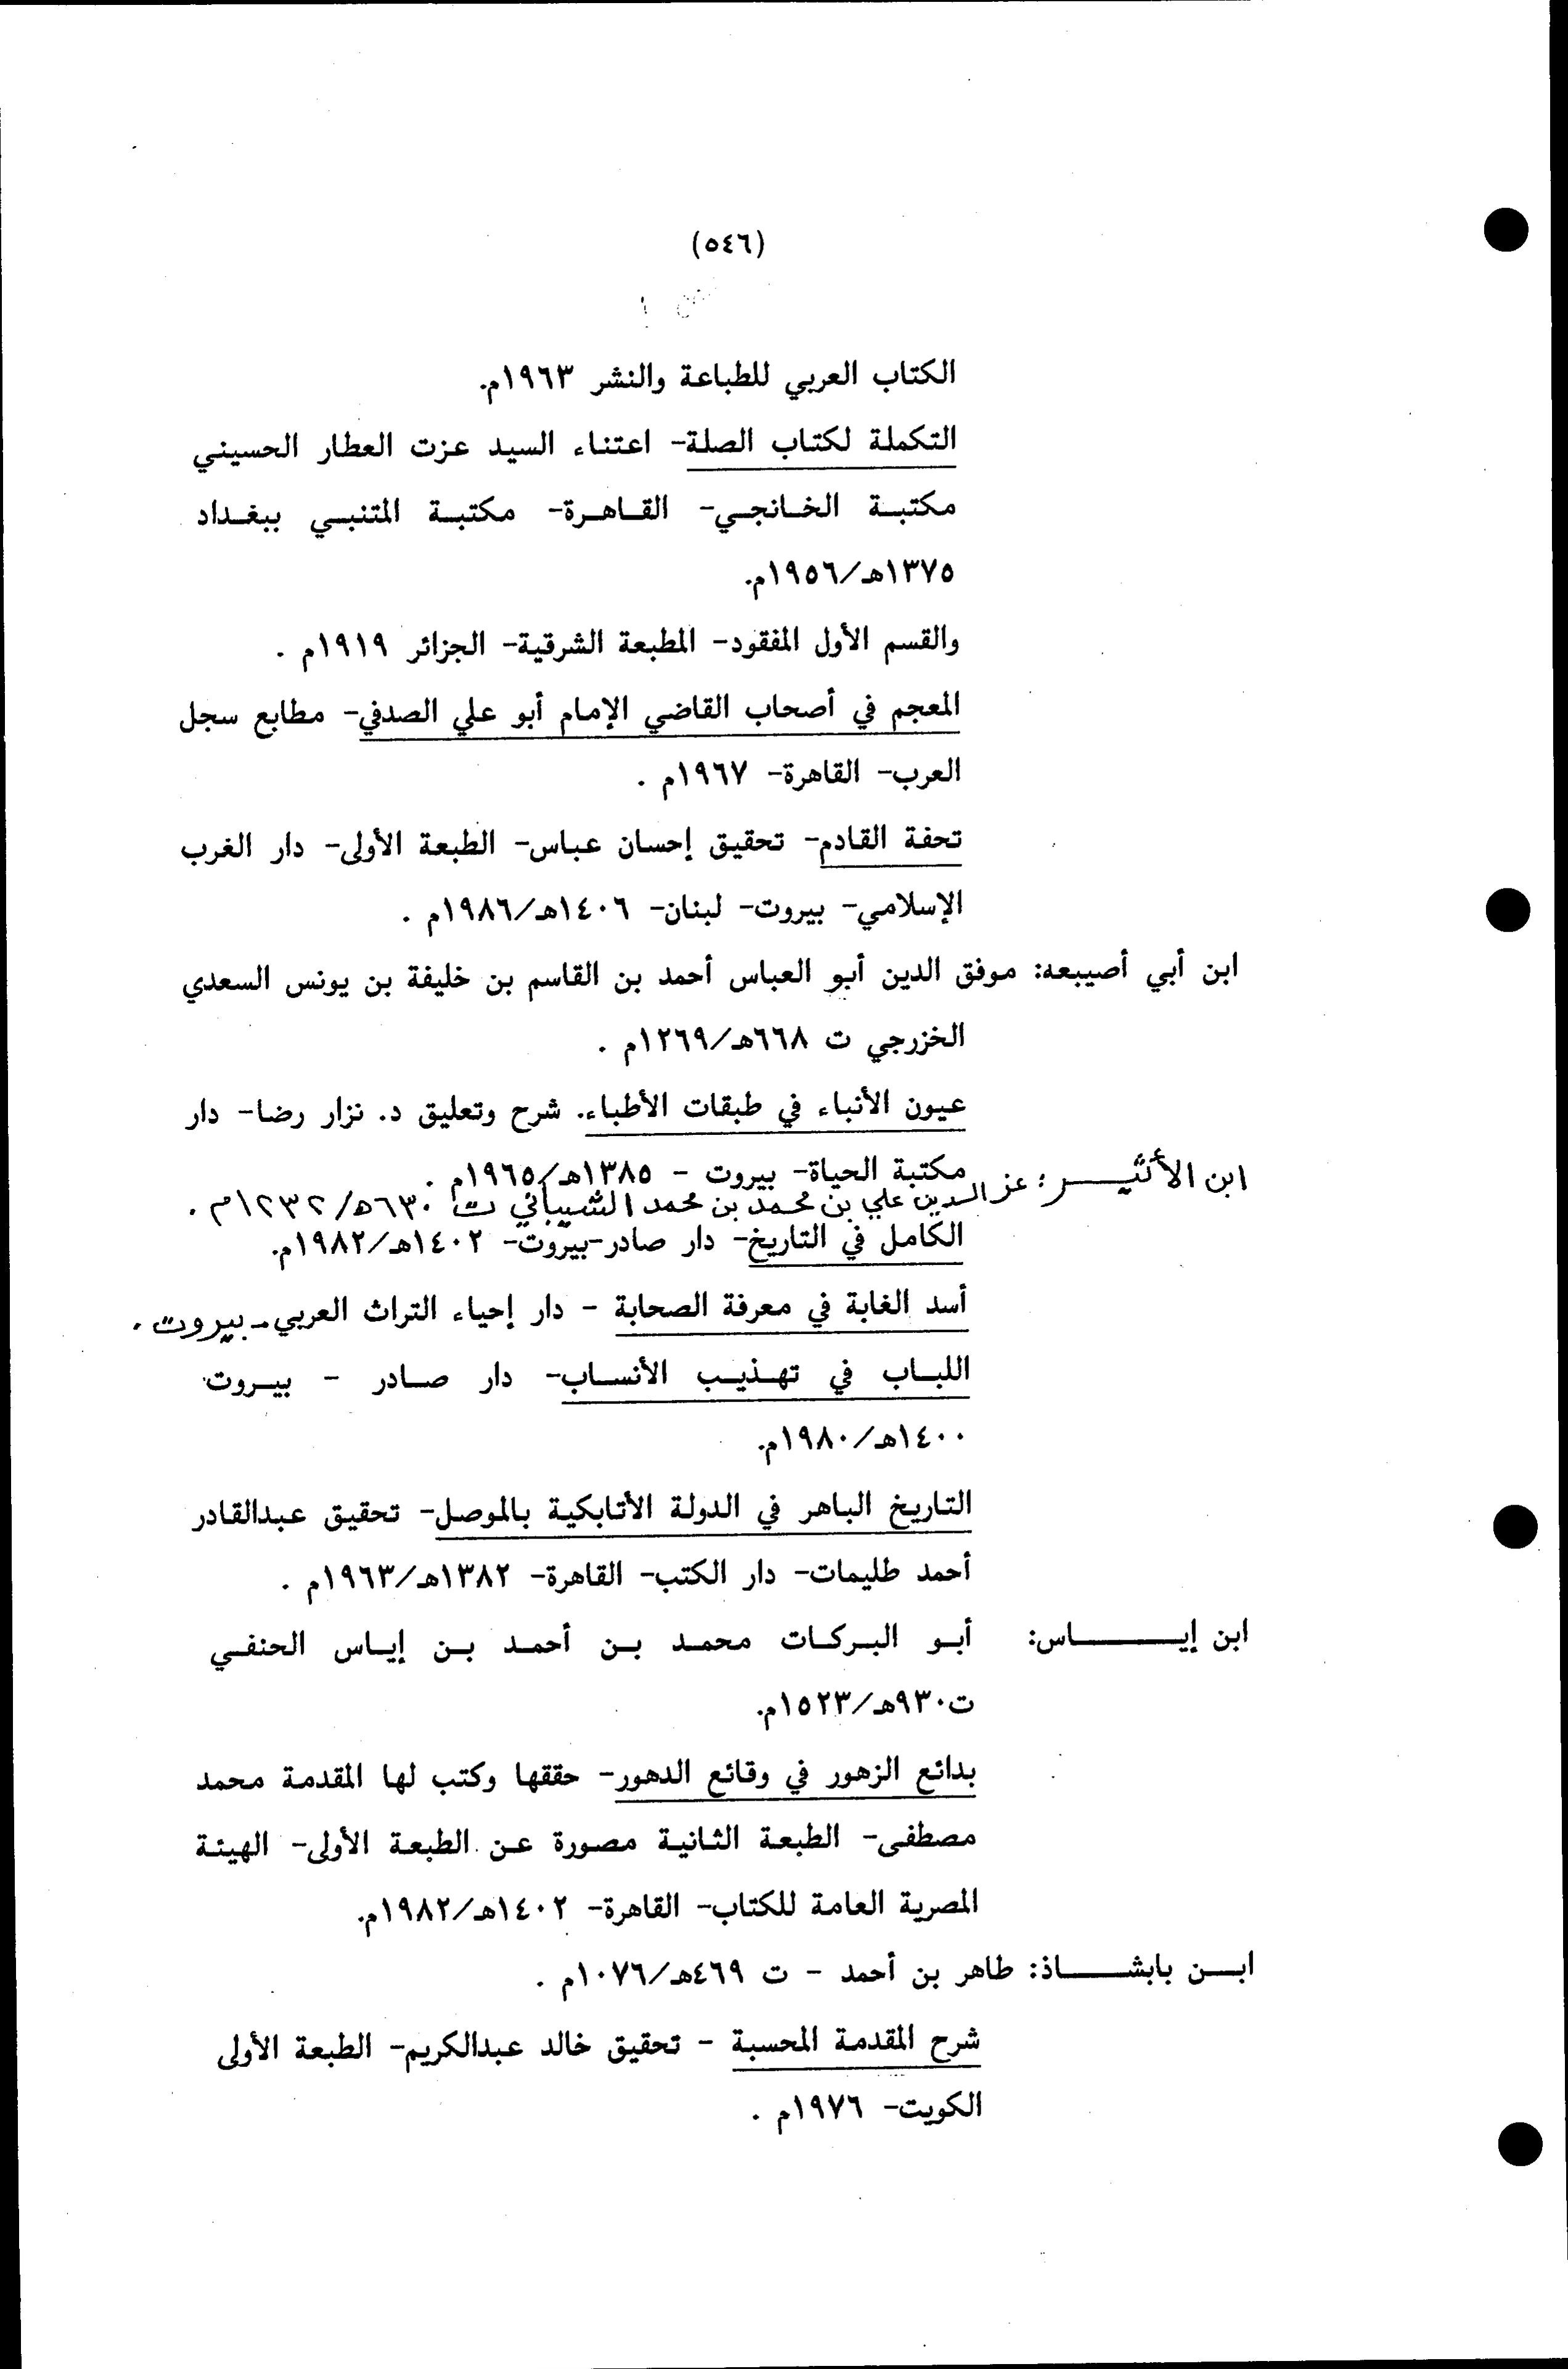 (٥٤٦)
الكتاب العربي للطباعة والنشر ١٩٦٣م.
التكملة لكتاب الصلة- اعتناء السيد عزت العطار الحسيني
مكتبة الخانجي- القاهرة- مكتبة المتنبي ببغداد
١٣٧٥هـ/١٩٥٦م.
والقسم الأول المفقود- المطبعة الشرقية- الجزائر ١٩١٩م .
المعجم في أصحاب القاضي الإمام أبو علي الصدفي- مطابع سجل
العرب- القاهرة- ١٩٦٧م .
تحفة القادم- تحقيق إحسان عباس- الطبعة الأولى- دار الغرب
الإسلامي- بيروت- لبنان- ١٤٠٦هـ/١٩٨٦م .
ابن أبي أصيبعه: موفق الدين أبو العباس أحمد بن القاسم بن خليفة بن يونس السعدي
الخزرجي ت ٦٦٨هـ/١٢٦٩م .
عيون الأنباء في طبقات الأطباء. شرح وتعليق د. نزار رضا- دار
مكتبة الحياة- بيروت - ١٣٨٥هـ/١٩٦٥م .
ابن الأثيـــر : عز الدين علي بن محمد بن محمد الشيباني ت ٦٣٠هـ/١٢٣٢م .
الكامل في التاريخ- دار صادر-بيروت- ١٤٠٢هـ/١٩٨٢م.
أسد الغابة في معرفة الصحابة - دار إحياء التراث العربي- بيروت .
اللباب في تهذيب الأنساب- دار صادر - بيروت
١٤٠٠هـ/١٩٨٠م.
التاريخ الباهر في الدولة الأتابكية بالموصل- تحقيق عبدالقادر
أحمد طليمات- دار الكتب- القاهرة- ١٣٨٢هـ/١٩٦٣م .
ابن إيـــــاس: أبو البركات محمد بن أحمد بن إياس الحنفي
ت٩٣٠هـ/١٥٢٣م.
بدائع الزهور في وقائع الدهور- حققها وكتب لها المقدمة محمد
مصطفى- الطبعة الثانية مصورة عن الطبعة الأولى- الهيئة
المصرية العامة للكتاب- القاهرة- ١٤٠٢هـ/١٩٨٢م.
ابــن بابشـــــاذ: طاهر بن أحمد - ت ٤٦٩هـ/١٠٧٦م .
شرح المقدمة المحسبة - تحقيق خالد عبدالكريم- الطبعة الأولى
الكويت- ١٩٧٦م .